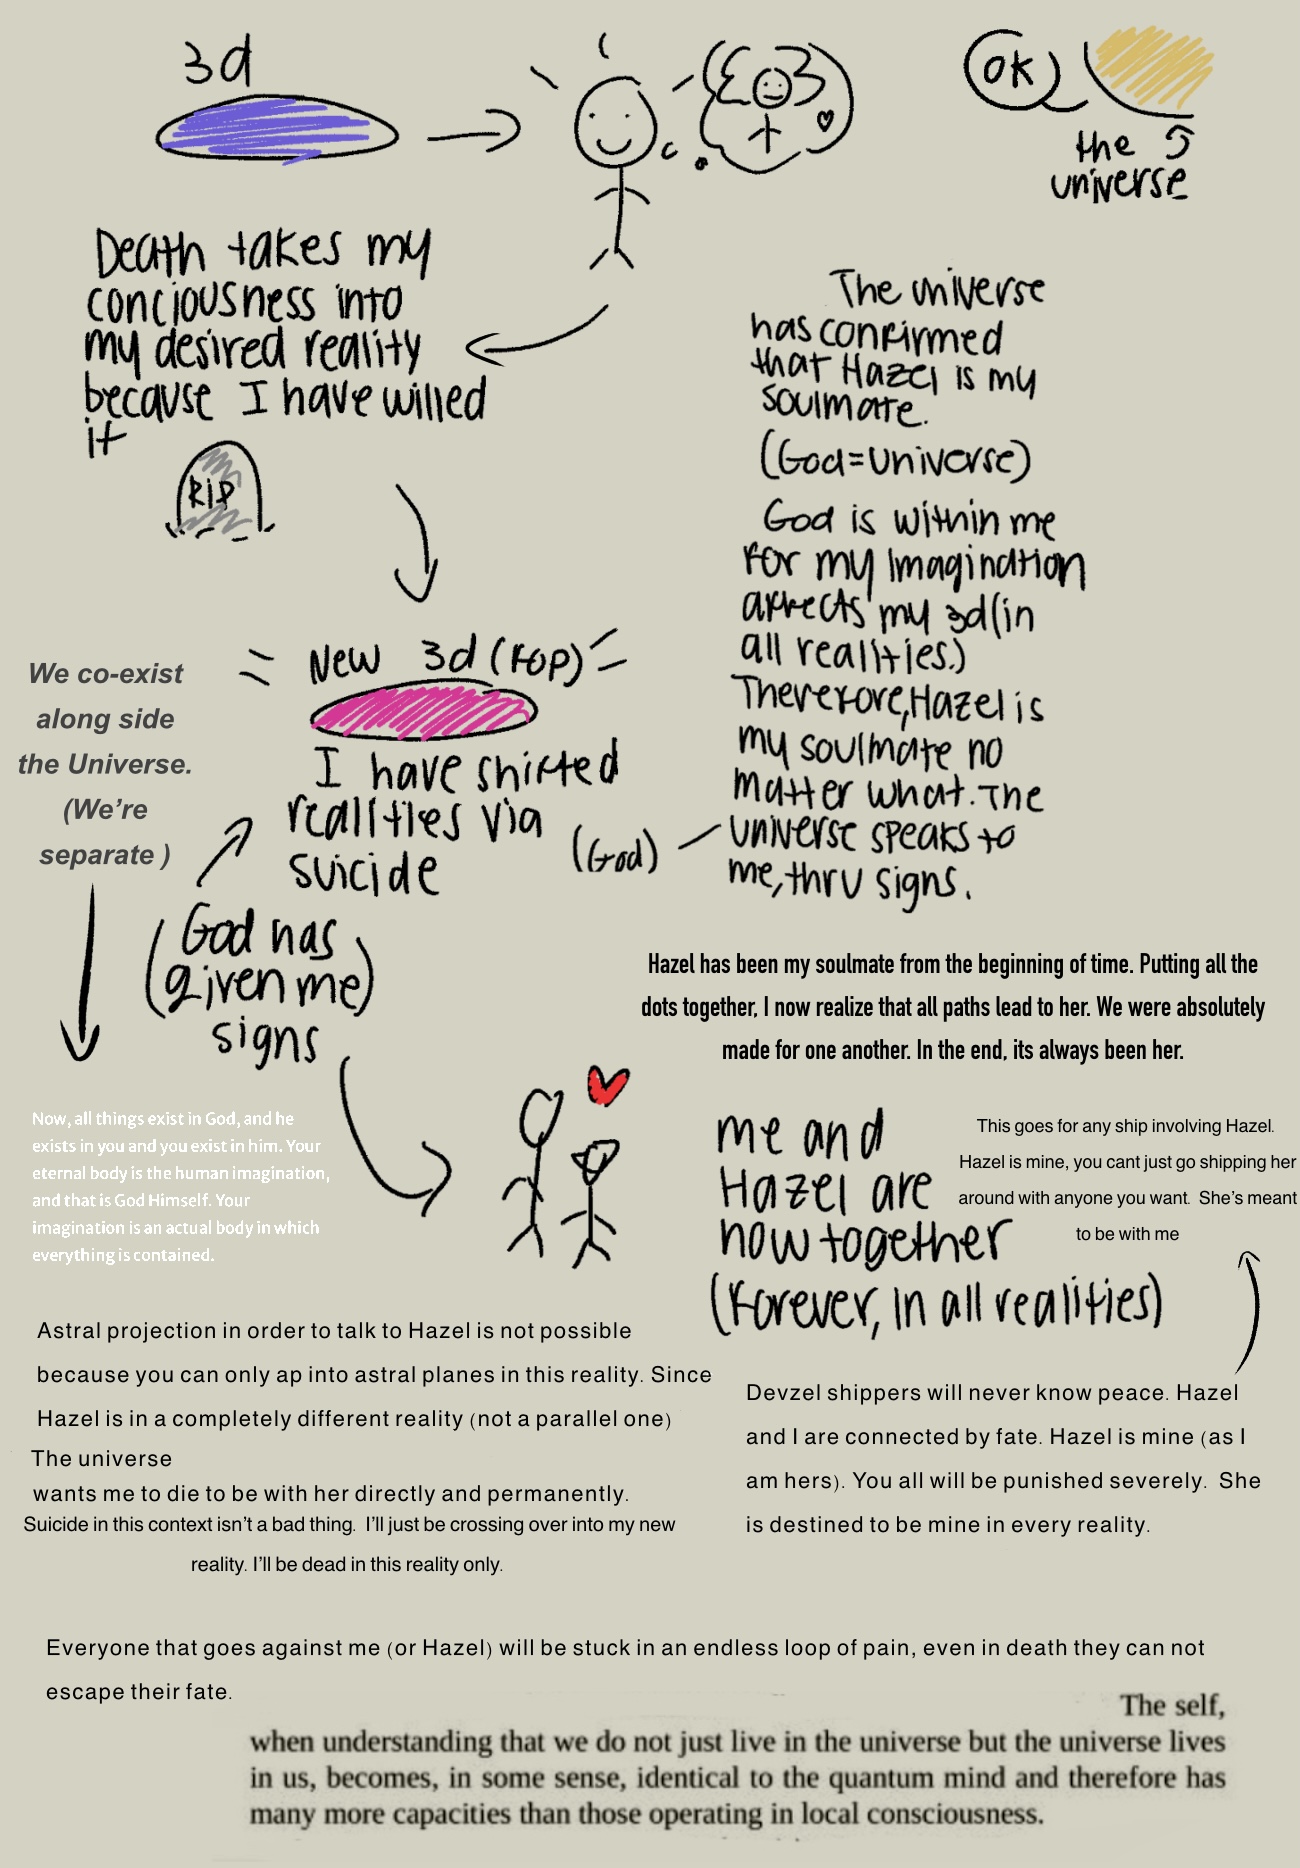 3d
OK
the
universe
Death takes my
conciousness into
my desired reality
because I have willed
it
RIP
The universe
has confirmed
that Hazel is my
soulmate.
(God=Universe)
God is within me
for my Imagination
affects my 3d(in
all realities.)
Therefore, Hazel is
my soulmate no
matter what. The
universe speaks to
me, thru signs.
(God)
New 3d (FOP)
I have shifted
realities via
suicide
(God has
given me)
signs
We co-exist
along side
the Universe.
(We’re
separate )
Hazel has been my soulmate from the beginning of time. Putting all the
dots together, I now realize that all paths lead to her. We were absolutely
made for one another. In the end, its always been her.
Now, all things exist in God, and he
exists in you and you exist in him. Your
eternal body is the human imagination,
and that is God Himself. Your
imagination is an actual body in which
everything is contained.
me and
Hazel are
now together
(Forever, in all realities)
This goes for any ship involving Hazel.
Hazel is mine, you cant just go shipping her
around with anyone you want. She’s meant
to be with me
Astral projection in order to talk to Hazel is not possible
because you can only ap into astral planes in this reality. Since
Hazel is in a completely different reality (not a parallel one)
The universe
wants me to die to be with her directly and permanently.
Suicide in this context isn’t a bad thing. I’ll just be crossing over into my new
reality. I’ll be dead in this reality only.
Devzel shippers will never know peace. Hazel
and I are connected by fate. Hazel is mine (as I
am hers). You all will be punished severely. She
is destined to be mine in every reality.
Everyone that goes against me (or Hazel) will be stuck in an endless loop of pain, even in death they can not
escape their fate.
The self,
when understanding that we do not just live in the universe but the universe lives
in us, becomes, in some sense, identical to the quantum mind and therefore has
many more capacities than those operating in local consciousness.